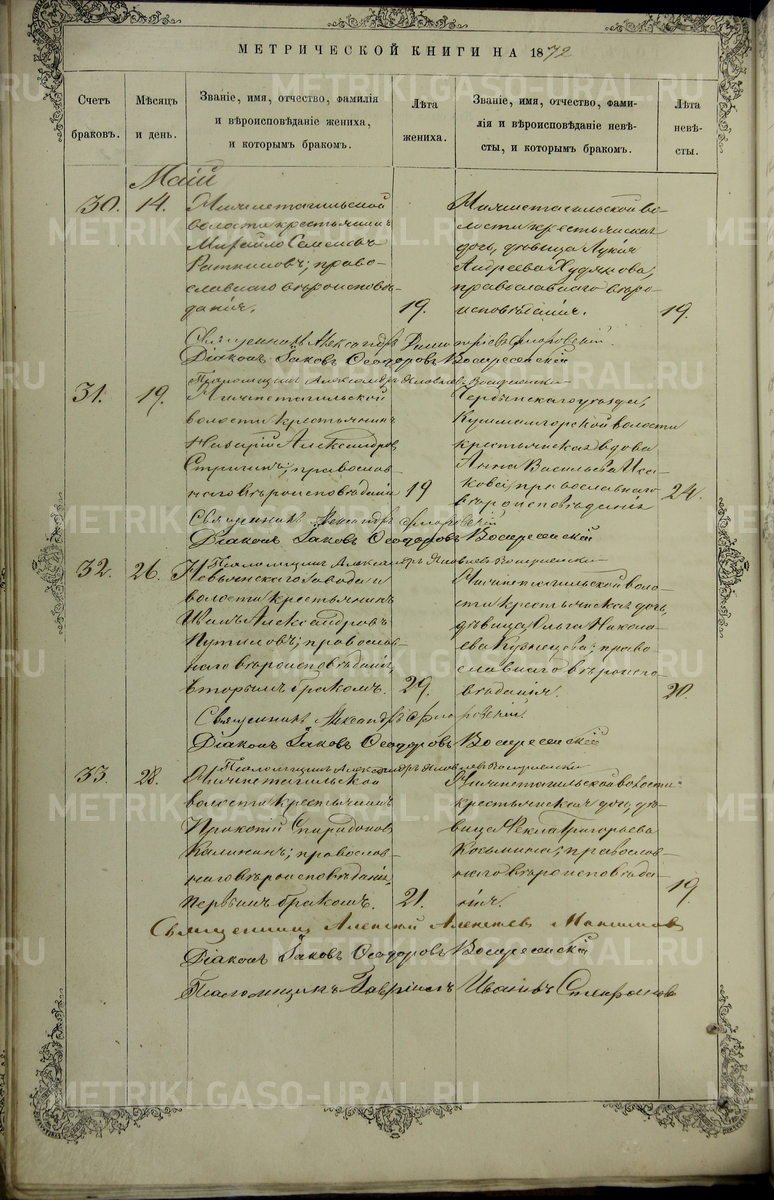 МЕТРИЧЕСКОЙ КНИГИ НА 1872
Счетъ браковъ.
Мѣсяцъ и день.
Званіе, имя, отчество, фамилія
и вѣроисповѣданіе жениха,
и которымъ бракомъ.
Лѣта жениха.
Званіе, имя, отчество, фами-
лія и вѣроисповѣданіе невѣ-
сты, и которымъ бракомъ.
Лѣта невѣ-
сты.
Маій
30.
14.
Нижнетагильской
волости крестьянинъ
Михайло Семеновъ
православнаго вѣроисповѣ-
данія.
19.
Нижнетагильской во-
лости крестьянская
дочь, дѣвица Лукія
Андреева Худякова;
православнаго вѣро-
исповѣданія.
19.
Священникъ Александръ Флоровскій.
Діаконъ Іаковъ Ѳеодоровъ Воскресенскій
Псаломщикъ Александръ Яковлевъ
31.
19.
Нижнетагильской
волости крестьянинъ
Назарій Александровъ
Стригинъ; православ-
наго вѣроисповѣданія
19
уѣзда,
Кушвинорской волости
крестьянская вдова
Анна Васильева Иса-
кова; православнаго
вѣроисповѣданія
24.
Священникъ Александръ Флоровскій
Діаконъ Іаковъ Ѳеодоровъ Воскресенскій
Псаломщикъ Александръ Яковлевъ
32.
26.
Невьянскаго завода и
волости крестьянинъ
Иванъ Александровъ
Путиловъ; православ-
наго вѣроисповѣданія,
вторымъ бракомъ.
29.
Нижнетагильской воло-
сти крестьянская дочь,
дѣвица Ольга Никола-
ева Кузнецова; право-
славнаго вѣроиспо-
вѣданія.
20.
Священникъ Александръ Флоровскій.
Діаконъ Іаковъ Ѳеодоровъ Воскресенскій
Псаломщикъ Александръ Яковлевъ
33.
28.
Нижнетагильской
волости крестьянинъ
Прокопій Спиридоновъ
Калининъ; православ-
наго вѣроисповѣданія,
первымъ бракомъ.
21.
Нижнетагильской волости
крестьянская дочь, дѣ-
вица Ѳекла Григорьева
Косьмина; православ-
наго вѣроисповѣда-
нія.
19.
Священникъ Алексій Алексѣевъ Максимовъ
Діаконъ Іаковъ Ѳеодоровъ Воскресенскій
Псаломщикъ Гавріилъ Ивановъ
METRIKI.GASO-URAL.RU